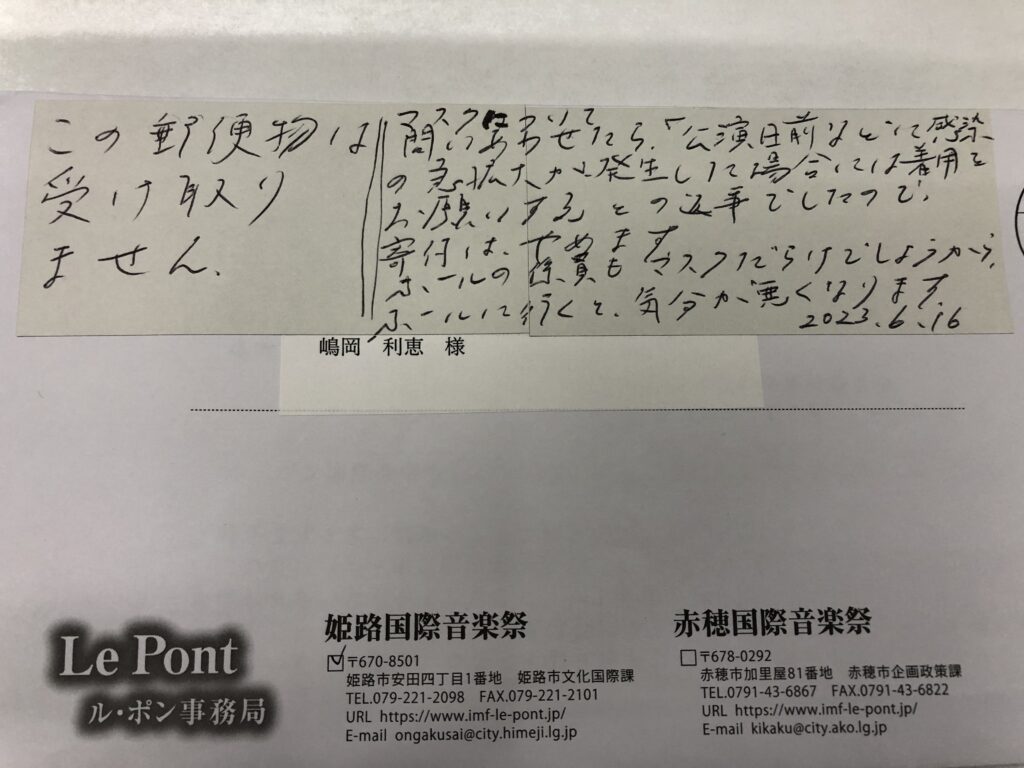 この郵便物は
受け取り
ません.
マスク
問いあわせたら、「公演日前などで感染
の急拡大が発生した場合には着用を
お願いするとの返事でしたので、
寄付は、やめます
ホールの係員もマスクだらけでしょうから、
ホールに行くと、気分が悪くなります.
2023.6.16
嶋岡 利恵 様
Le Pont
ル・ポン事務局
姫路国際音楽祭
〒670-8501
姫路市安田四丁目1番地 姫路市文化国際課
TEL.079-221-2098 FAX.079-221-2101
URL https://www.imf-le-pont.jp/
E-mail ongakusai@city.himeji.lg.jp
赤穂国際音楽祭
〒678-0292
赤穂市加里屋81番地 赤穂市企画政策課
TEL.0791-43-6867 FAX.0791-43-6822
URL https://www.imf-le-pont.jp/
E-mail kikaku@city.ako.lg.jp